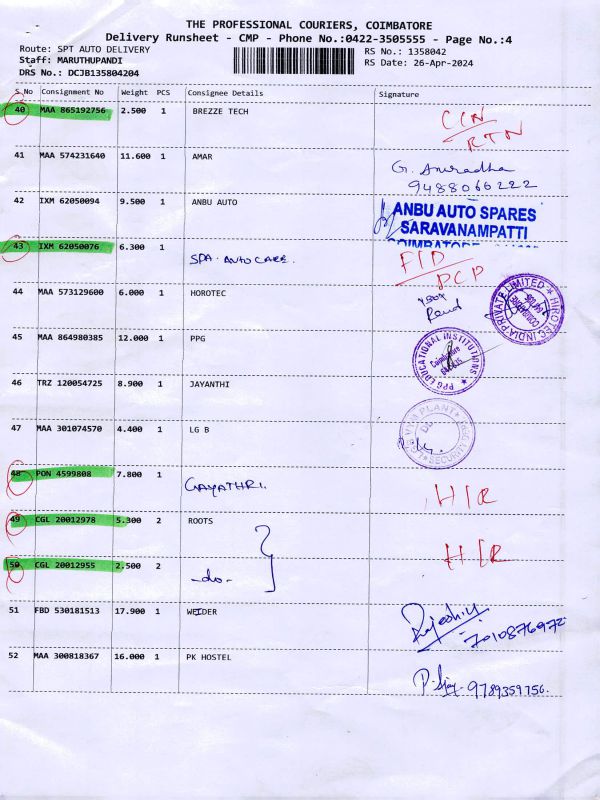 THE PROFESSIONAL COURIERS, COIMBATORE
Delivery Runsheet - CMP - Phone No.:0422-3505555 - Page No.:4
Route: SPT AUTO DELIVERY
RS No.: 1358042
Staff: MARUTHUPANDI
RS Date: 26-Apr-2024
DRS No.: DCJB135804204
S.No Consignment No Weight PCS Consignee Details Signature
40 MAA 865192756 2.500 1 BREZZE TECH CIN
RTN
41 MAA 574231640 11.600 1 AMAR G. Anuradha
9488066222
42 IXM 62050094 9.500 1 ANBU AUTO ANBU AUTO SPARES
SARAVANAMPATTI
COIMBATORE
43 IXM 62050076 6.300 1 SPA. AUTO CARE. F/D
PCP
44 MAA 573129600 6.000 1 HOROTEC HIROTEC INDIA PRIVATE LIMITED
45 MAA 864980385 12.000 1 PPG PPG EDUCATIONAL INSTITUTIONS
Coimbatore
46 TRZ 120054725 8.900 1 JAYANTHI
47 MAA 301074570 4.400 1 LG B PLANT SECURITY
48 PON 4599808 7.800 1 GAYATHRI. H/R
49 CGL 20012978 5.300 2 ROOTS H/R
50 CGL 20012955 2.500 2 -do-
51 FBD 530181513 17.900 1 WEIDER 7010876972
52 MAA 300818367 16.000 1 PK HOSTEL 9789359756.